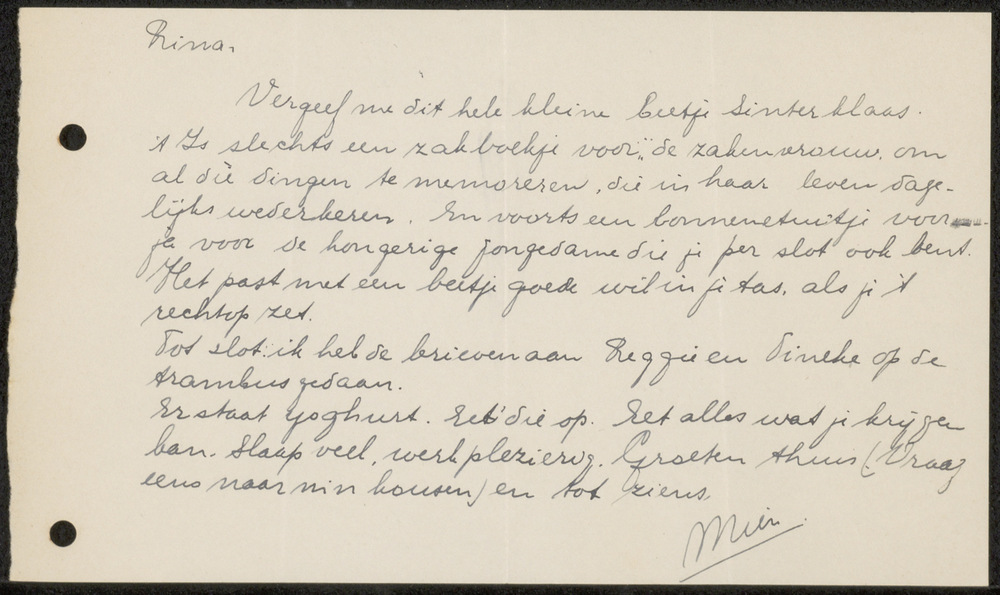 Rina.
Vergeef me dit hele kleine beetje Sinterklaas.
't Is slechts een zakboekje voor „de zakenvrouw. om
al die dingen te memoreren, die in haar leven dage-
lijks wederkeren. En voorts een bonnenetuitje voor
ja voor de hongerige jongedame die je per slot ook bent.
Het past met een beetje goede wil in je tas, als je 't
rechtop zet.
Tot slot: ik heb de brieven aan Reggie en Dineke op de
trambus gedaan.
Er staat yoghurt. Eet die op. Eet alles wat je krijgen
kan. Slaap veel, werk plezierig. Groeten thuis (Vraag
eens naar mijn kousen) en tot ziens.
Mien.